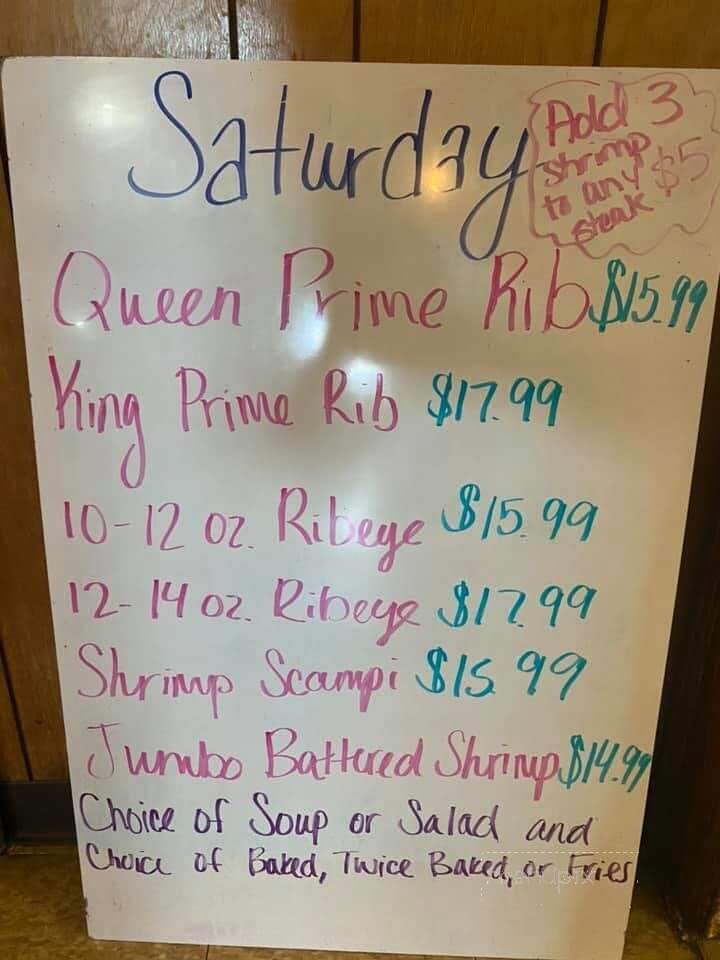 Saturday
Add 3
shrimp
to any $5
steak
Queen Prime Rib $15.99
King Prime Rib $17.99
10-12 oz. Ribeye $15.99
12-14 oz. Ribeye $17.99
Shrimp Scampi $15.99
Jumbo Battered Shrimp $14.99
Choice of Soup or Salad and
Choice of Baked, Twice Baked, or Fries